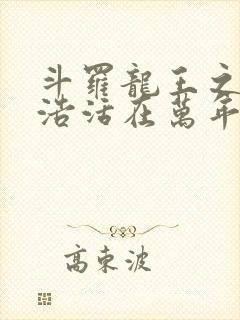 斗羅龍王之
浩活在萬年
高東波